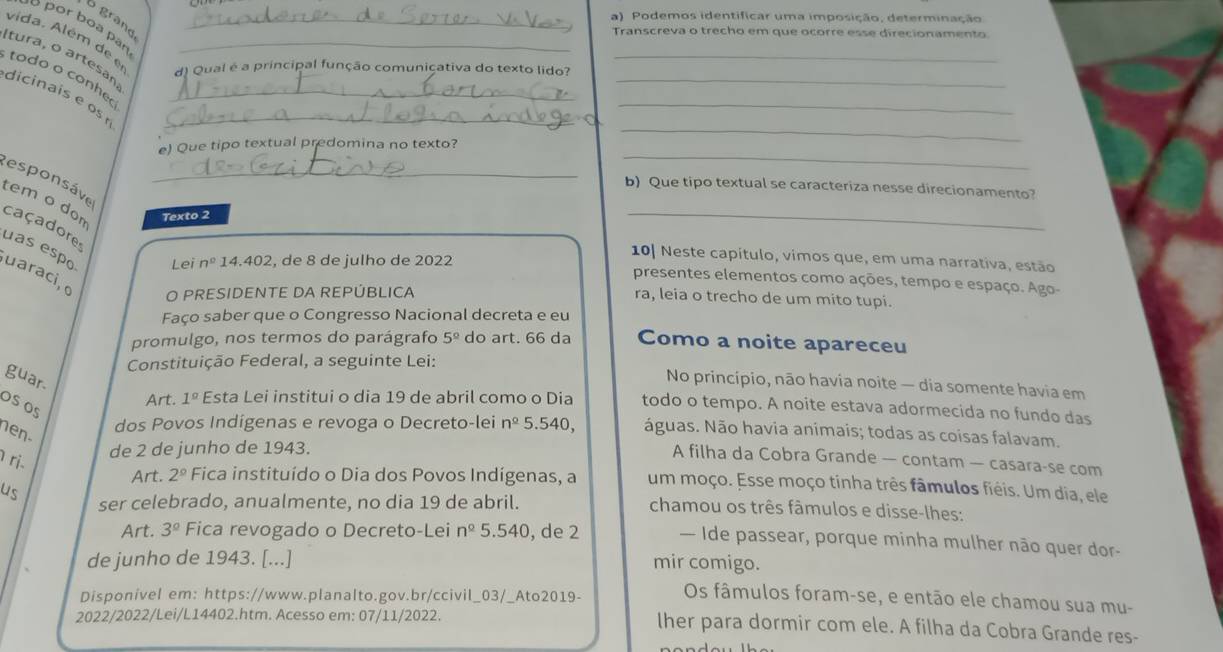 o grand
o por boa part
vida. Além de en
ltura, o artesana
s todo o conheci
edicinais e os ri
Responsável
tem o dom
caçadores
suas espo-
Guaraci, o
guar-
os os
nen-
n ri-
us
de Seres Vivos
d) Qual é a principal função comunicativa do texto lido?
Sobre a mitologia indigena
e) Que tipo textual predomina no texto?
descritivo
Texto 2
Lei nº 14.402, de 8 de julho de 2022
O PRESIDENTE DA REPÚBLICA
Faço saber que o Congresso Nacional decreta e eu
promulgo, nos termos do parágrafo 5º do art. 66 da
Constituição Federal, a seguinte Lei:
Art. 1º Esta Lei institui o dia 19 de abril como o Dia
dos Povos Indígenas e revoga o Decreto-lei nº 5.540,
de 2 de junho de 1943.
Art. 2º Fica instituído o Dia dos Povos Indígenas, a
ser celebrado, anualmente, no dia 19 de abril.
Art. 3º Fica revogado o Decreto-Lei nº 5.540, de 2
de junho de 1943. [...]
Disponível em: https://www.planalto.gov.br/ccivil_03/_Ato2019-
2022/2022/Lei/L14402.htm. Acesso em: 07/11/2022.
a) Podemos identificar uma imposição, determinação.
Transcreva o trecho em que ocorre esse direcionamento.
b) Que tipo textual se caracteriza nesse direcionamento?
10| Neste capítulo, vimos que, em uma narrativa, estão
presentes elementos como ações, tempo e espaço. Ago-
ra, leia o trecho de um mito tupi.
Como a noite apareceu
No princípio, não havia noite — dia somente havia em
todo o tempo. A noite estava adormecida no fundo das
águas. Não havia animais; todas as coisas falavam.
A filha da Cobra Grande — contam — casara-se com
um moço. Esse moço tinha três fâmulos fiéis. Um dia, ele
chamou os três fâmulos e disse-lhes:
— Ide passear, porque minha mulher não quer dor-
mir comigo.
Os fâmulos foram-se, e então ele chamou sua mu-
lher para dormir com ele. A filha da Cobra Grande res-